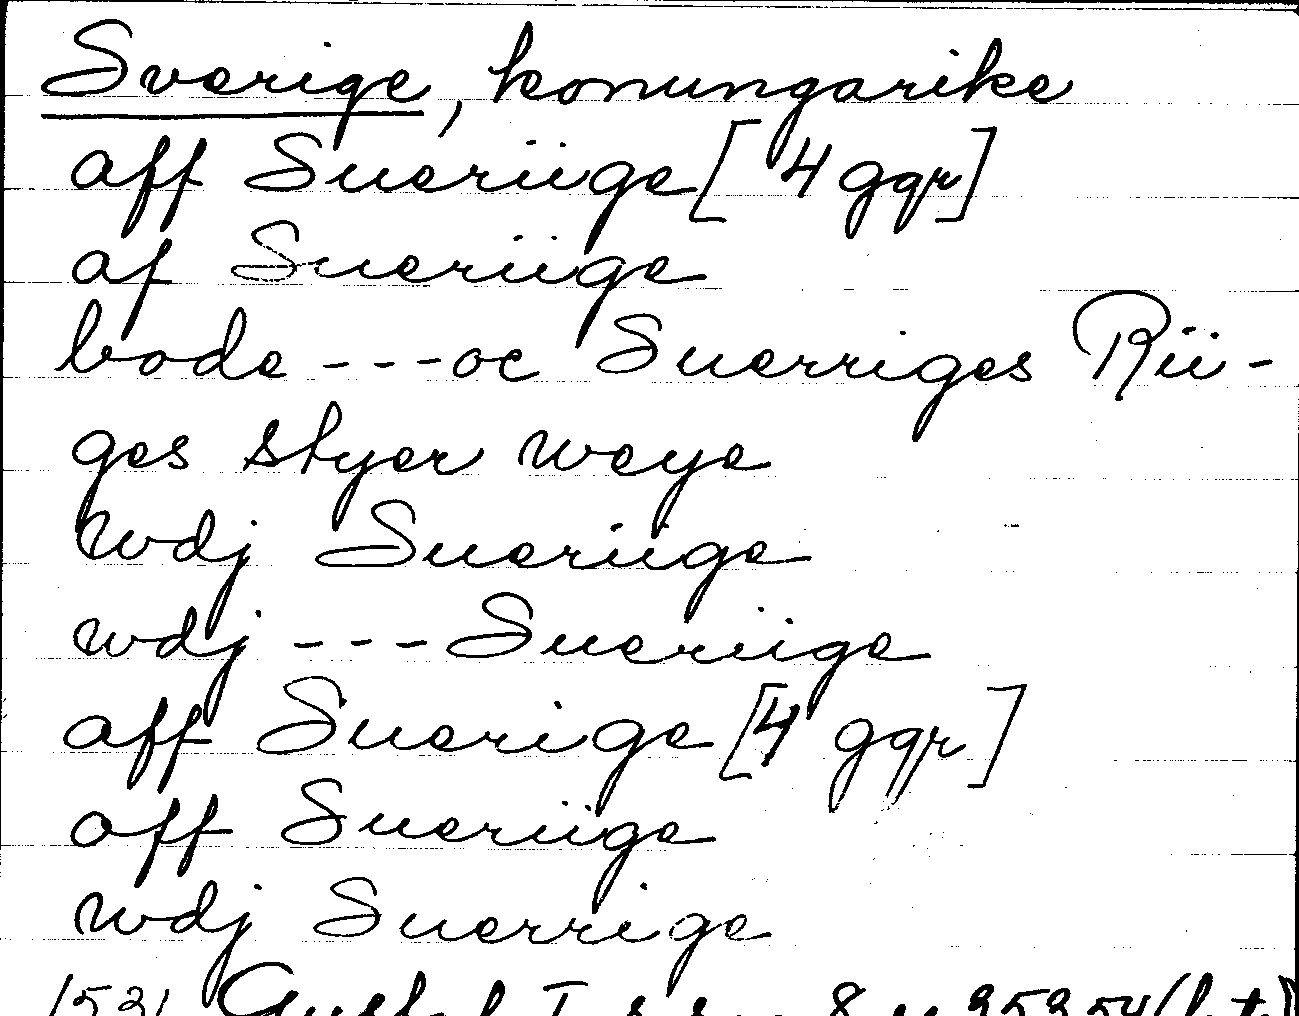 Sverige, konungarike
aff Sueriige [4 ggr]
af Sueriige
bode ---oc Suerriges Rii-
ges styer weye
wdj Sueriige
wdj --- Sueriige
aff Suerige [4 ggr]
aff Sueriige
wdj Suerrige
1521